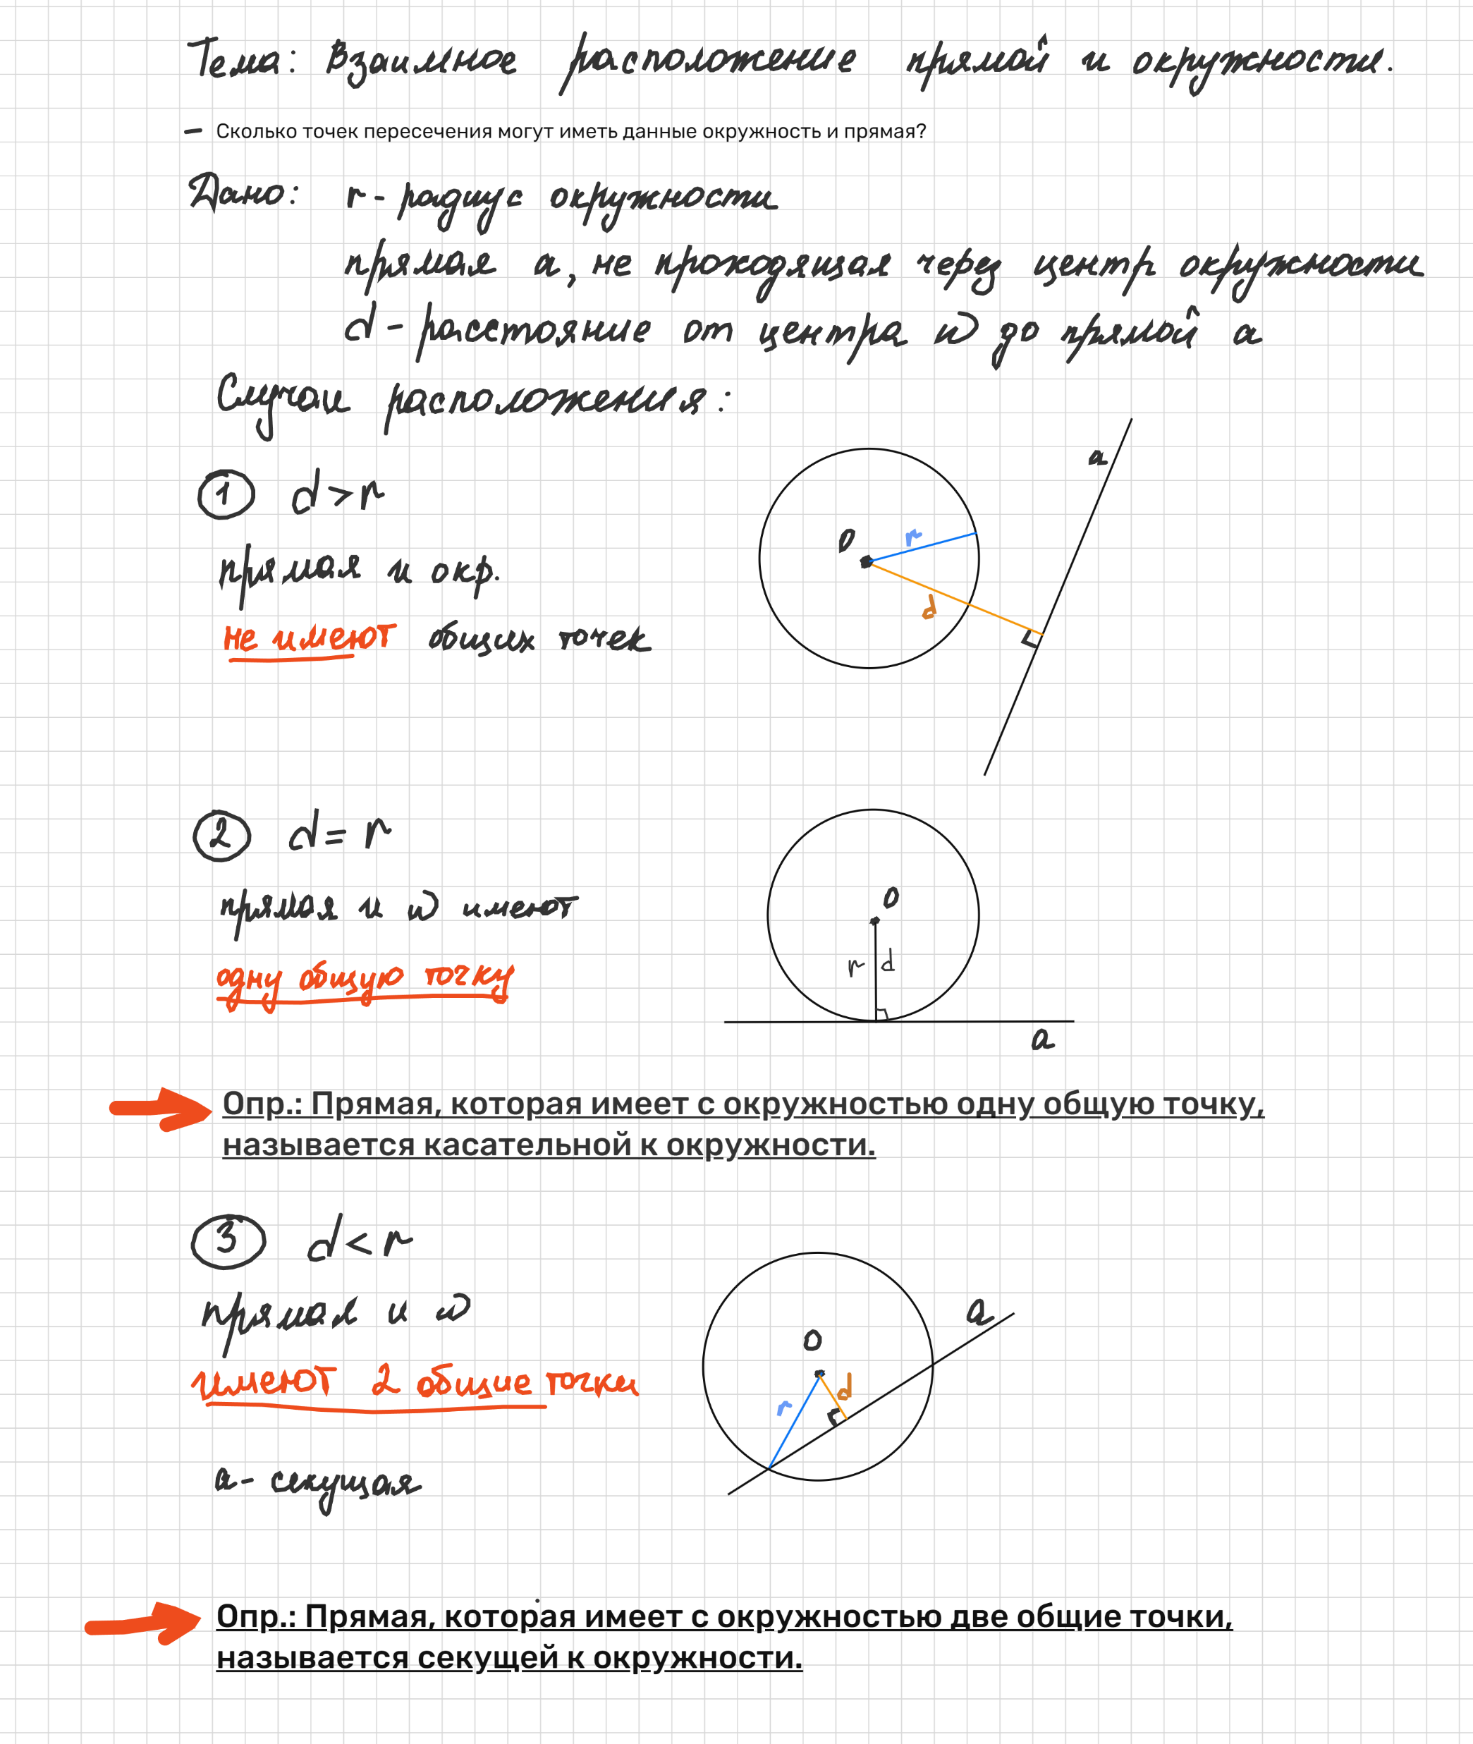 Тема: Взаимное расположение прямой и окружности.
– Сколько точек пересечения могут иметь данные окружность и прямая?
Дано: r - радиус окружности
прямая a, не проходящая через центр окружности
d - расстояние от центра ω до прямой a
Случаи расположения:
1 d > r
прямая и окр.
не имеют общих точек
a
O
r
d
2 d = r
прямая и ω имеют
одну общую точку
O
r d
a
Опр.: Прямая, которая имеет с окружностью одну общую точку,
называется касательной к окружности.
3 d < r
прямая и ω
имеют 2 общие точки
a - секущая
a
O
d
r
Опр.: Прямая, которая имеет с окружностью две общие точки,
называется секущей к окружности.